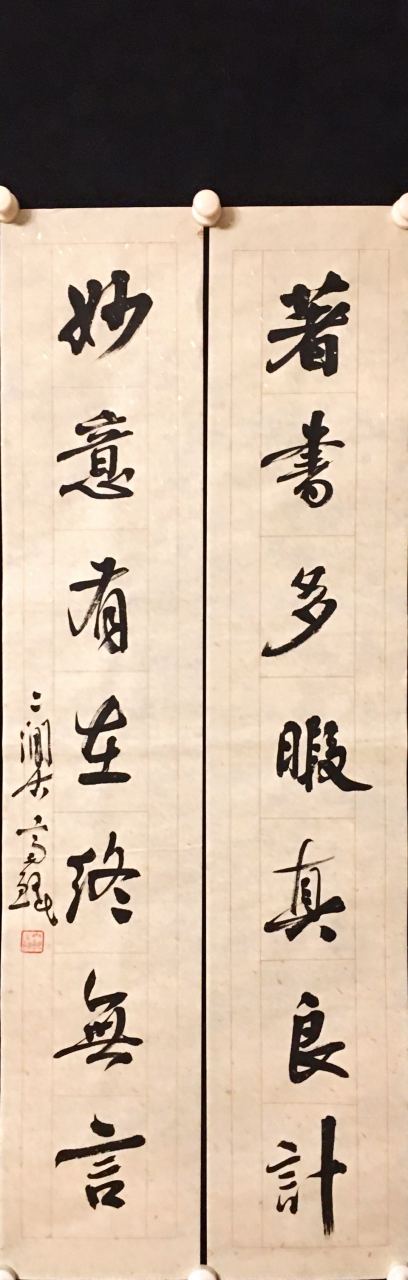 著書多暇真良計
妙意有在終無言